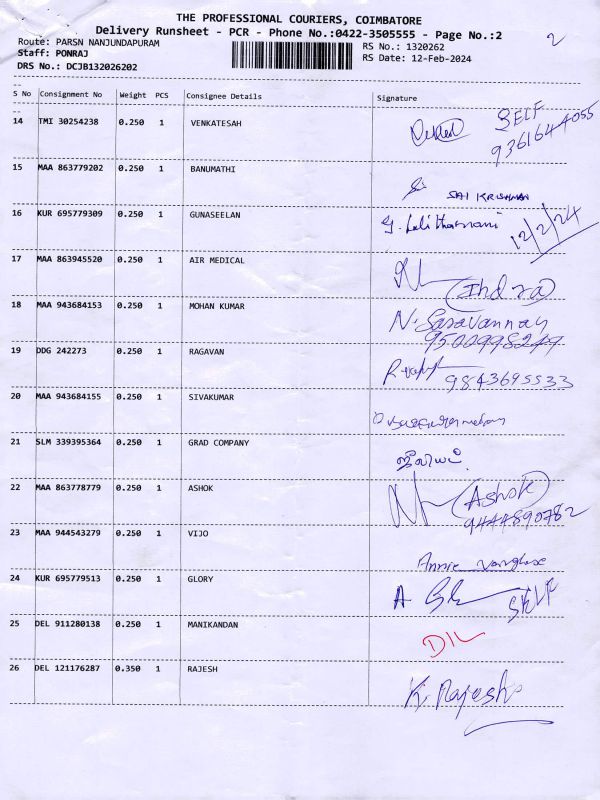 THE PROFESSIONAL COURIERS, COIMBATORE
Delivery Runsheet - PCR - Phone No.:0422-3505555 - Page No.:2
2
Route: PARSN NANJUNDAPURAM
RS No.: 1320262
Staff: PONRAJ
RS Date: 12-Feb-2024
DRS No.: DCJB132026202
S No Consignment No Weight PCS Consignee Details Signature
14 TMI 30254238 0.250 1 VENKATESAH SELF
9361644055
15 MAA 863779202 0.250 1 BANUMATHI
SAI KRISHNAN
16 KUR 695779309 0.250 1 GUNASEELAN 12/2/24
17 MAA 863945520 0.250 1 AIR MEDICAL
(Indra)
18 MAA 943684153 0.250 1 MOHAN KUMAR N. Saravannan
9500998247
19 DDG 242273 0.250 1 RAGAVAN
9843695533
20 MAA 943684155 0.250 1 SIVAKUMAR
21 SLM 339395364 0.250 1 GRAD COMPANY
22 MAA 863778779 0.250 1 ASHOK (Ashok)
9444890782
23 MAA 944543279 0.250 1 VIJO
Annie Varghese
24 KUR 695779513 0.250 1 GLORY SELF
25 DEL 911280138 0.250 1 MANIKANDAN
DIL
26 DEL 121176287 0.350 1 RAJESH K. Rajesh